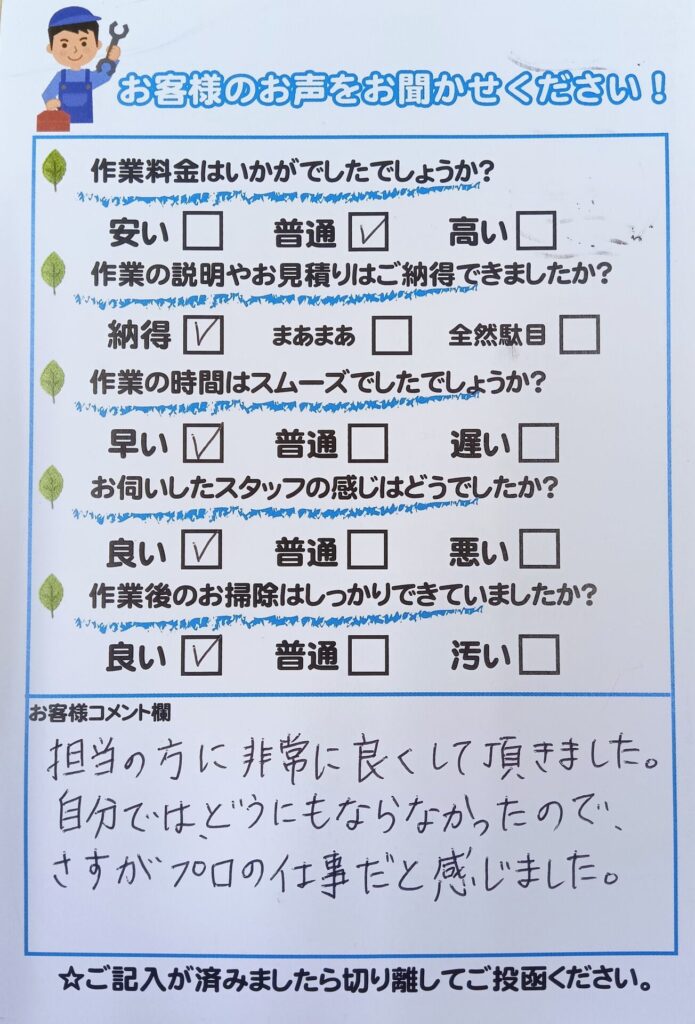 お客様のお声をお聞かせください！
作業料金はいかがでしたでしょうか？
安い □ 普通 ☑ 高い □
作業の説明やお見積りはご納得できましたか？
納得 ☑ まあまあ □ 全然駄目 □
作業の時間はスムーズでしたでしょうか？
早い ☑ 普通 □ 遅い □
お伺いしたスタッフの感じはどうでしたか？
良い ☑ 普通 □ 悪い □
作業後のお掃除はしっかりできていましたか？
良い ☑ 普通 □ 汚い □
お客様コメント欄
担当の方に非常に良くして頂きました。
自分では、どうにもならなかったので、
さすがプロの仕事だと感じました。
☆ご記入が済みましたら切り離してご投函ください。